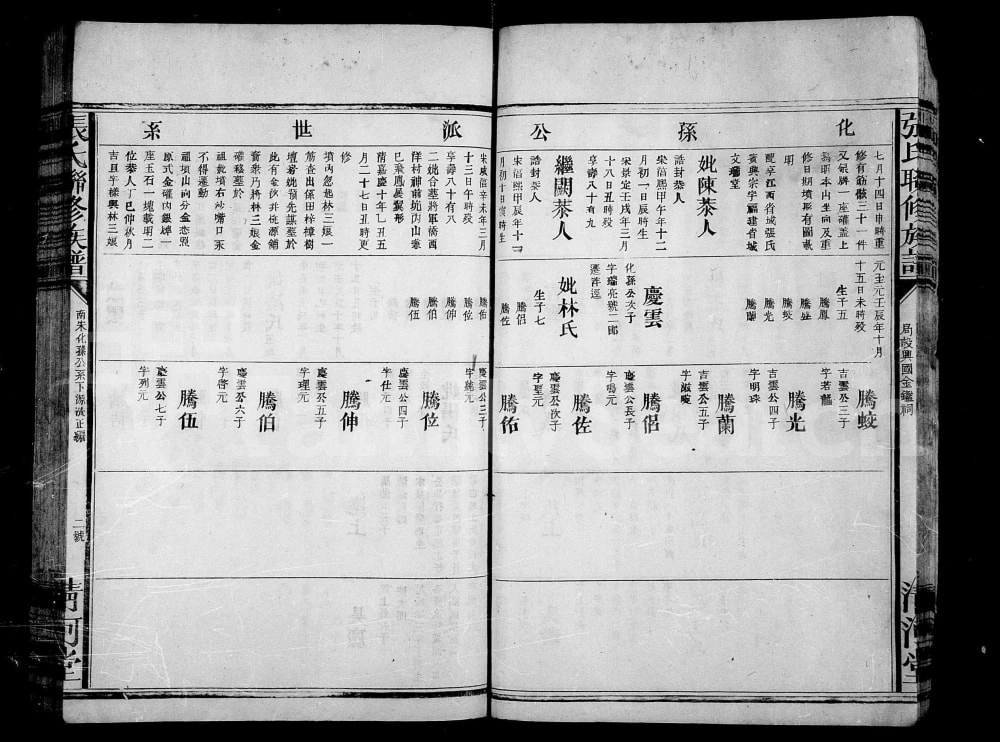 化孫公派世系
張氏聯修族譜
局設興國金鑑祠
清河堂
七月十四日申時重
修有筋骸三十一件
又銀牌一座磚蓋上
爲明本山坐向及重
修日期墳形有圖載
明
配享江西省城張氏
賓興宗學福建省城
文瓊堂
妣陳恭人
誥封恭人
宋淳熙甲午年十二
月初一日辰時生
宋景定壬戌年三月
十八日丑時歿
享壽八十有九
繼闕恭人
誥封恭人
宋淳熙甲辰年十一
月初十日寅時生
宋咸淳辛未年三月
十三日午時歿
享壽八十有八
二妣合墓將軍橋西
洋村神前坑丙山壬
巳飛鳳展翼形
清嘉慶十年乙丑五
月二十七日丑時更
修
墳內忽起林三娘一
筋查出係田梓樟樹
壇若妣預先謀墓於
此有金伙井從源舖
奮衆乃將林三娘金
確移墓於
祖妣墳右沙嘴口永
不得遷動
祖項山向分金悉照
原式金確內銀埤一
座玉石一塊載明二
位恭人丁巳仲秋月
吉旦字樣與林三娘
元至元壬辰年十月
十五日未時歿
生子五
騰鳳
騰蛟
騰光
騰蘭
慶雲
化孫公次子
字瑞亮號二郎
遷許逕
妣林氏
生子七
騰侶
騰佐
騰佑
騰位
騰伸
騰伯
騰伍
騰蛟
吉雲公三子
字若龍
騰光
吉雲公四子
字明珠
騰蘭
吉雲公五子
騰侶
慶雲公長子
字鳴元
騰佐
慶雲公次子
字聖元
騰佑
慶雲公三子
字純元
騰位
慶雲公四子
字仕元
騰伸
慶雲公五子
字理元
騰伯
慶雲公六子
字啓元
騰伍
慶雲公七子
字列元
張氏聯修族譜
南朱化孫公系下源流正編
二號
清河堂